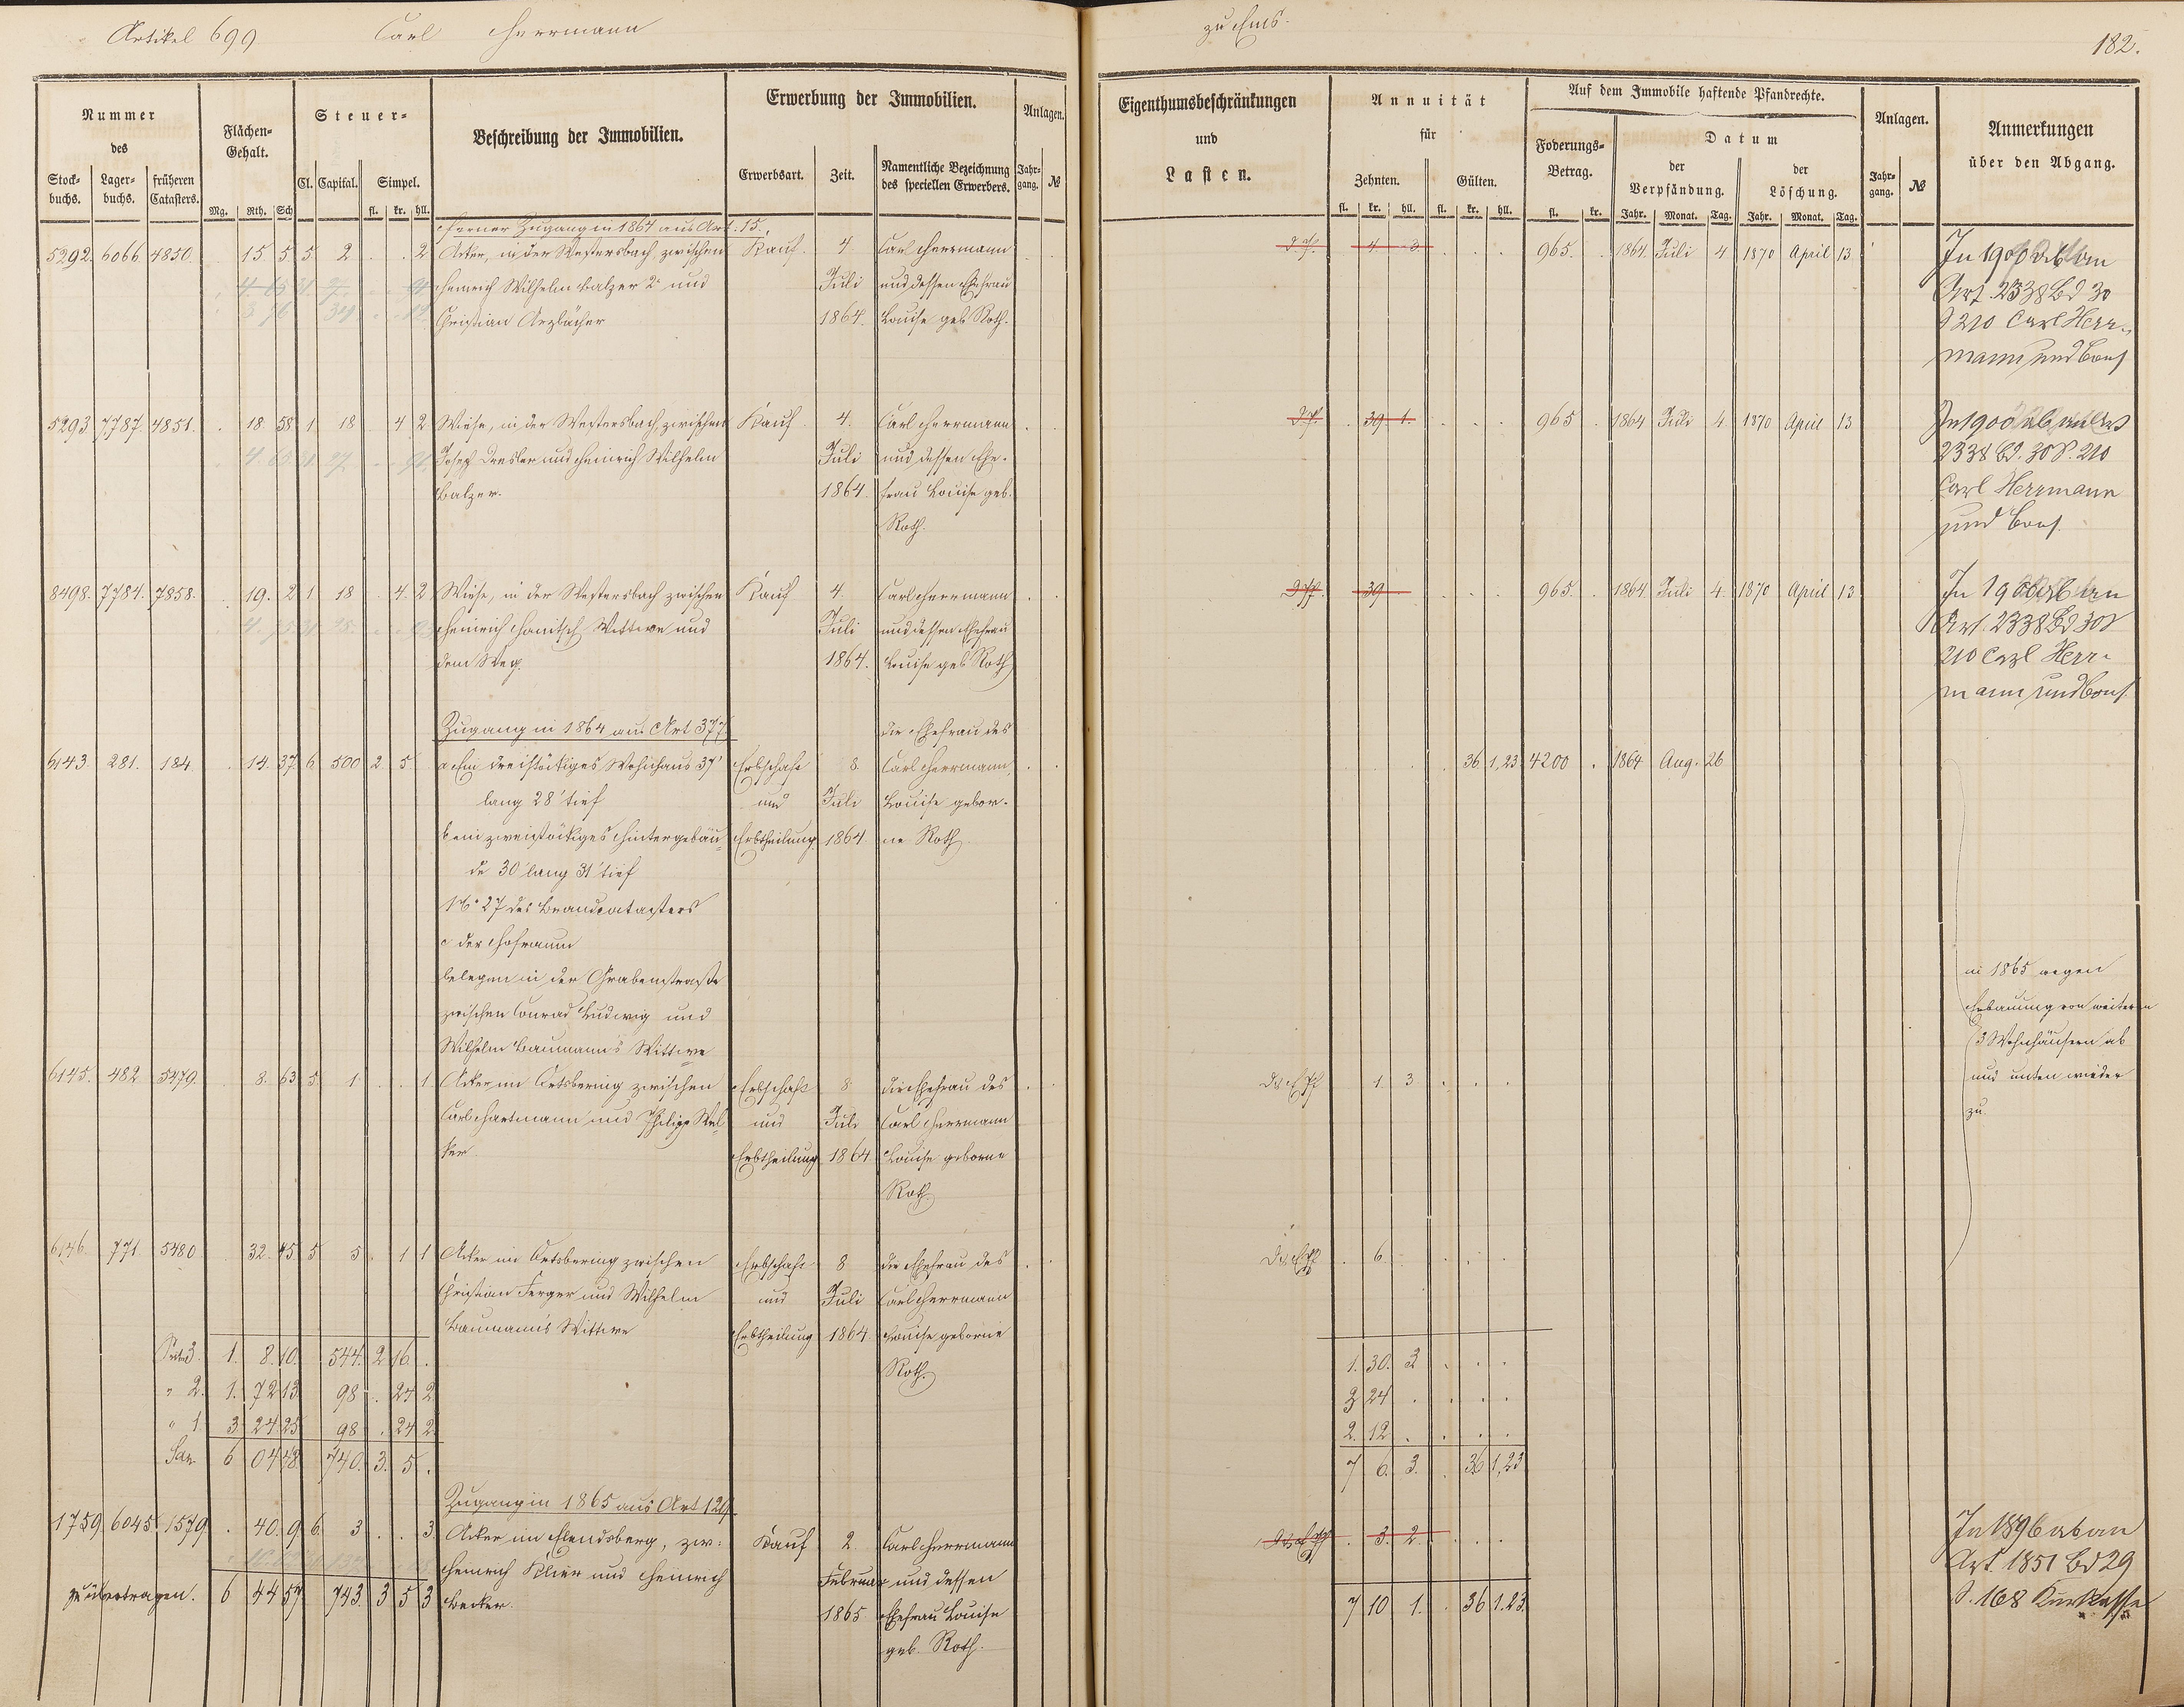 Artikel 699
Carl Herrmann
zu Ems.
182.
Nummer
des
Stock-
buchs.
Lager-
buchs.
früheren
Catasters.
Flächen-
Gehalt.
Mg. Rth. Sch
Steuer-
Cl. Capital. Simpel.
fl. kr. hll.
Beschreibung der Immobilien.
Erwerbung der Immobilien.
Erwerbsart. Zeit.
Namentliche Bezeichnung
des speciellen Erwerbers.
Anlagen.
Jahr-
gang. №
Eigenthumsbeschränkungen
und
Lasten.
Annuität
für
Zehnten. Gülten.
fl. kr. hll. fl. kr. hll.
Auf dem Immobile haftende Pfandrechte.
Foderungs-
Betrag.
fl. kr.
Datum
der
Verpfändung.
Jahr. Monat. Tag.
der
Löschung.
Jahr. Monat. Tag.
Anlagen.
Jahr-
gang. №
Anmerkungen
über den Abgang.
Ferner Zugang in 1864 aus Art. 15.
5292. 6066 4850. 15 5 5 2 . . 2 Acker, in der Westersbach zwischen Kauf. 4. Carl Herrmann 4 3 965. 1864. Juli 4 1870 April 13 In 1900 ab an
Heinrich Wilhelm Balzer 2r und Juli und dessen Ehefrau Art. 2338 Bd 30
Christian Arzbächer 1864. Louise geb Roth. S 210 Carl Herr-
mann und Cons
5293 7787. 4851. 18 58 1 18 4 2 Wiese, in der Westersbach, zwischen Kauf. 4. Carl Herrmann 39 1. 965 1864 Juli 4. 1870 April 13 In 1900 ab an Art
Josef Dresler und Heinrich Wilhelm Juli und dessen Ehe- 2338 Bd. 30 S. 210
Balzer. 1864. frau Louise geb. Carl Herrmann
Roth. und Cons.
8498. 7784. 7858. 19. 2 1 18 4. 2 Wiese, in der Westersbach zwischen Kauf 4. Carl Herrmann 39 965. 1864. Juli 4. 1870 April 13 In 1900 ab an
Heinrich Wittwe und Juli und dessen Ehefrau Art. 2338 Bd 30 S
dem Weg. 1864. Louise geb Roth 210 Carl Herr-
mann und Cons.
Zugang in 1864 aus Art 377 die Ehefrau des
6143. 281. 184 14. 37. 6 500 2 5. a Ein dreistöckiges Wohnhaus 37' Erbschaft 8. Carl Herrmann, 36 1,23 4200 . 1864 Aug. 26
lang 28' tief und Juli Louise gebor-
b ein zweistöckiges Hintergebäu- Erbtheilung. 1864. ne Roth.
de 30' lang 31' tief
No 27 des Brandcatasters
c der Hofraum
belegen in der Grabenstraße in 1865 wegen
zwischen Conrad Ludwig und Erbauung von weiteren
Wilhelm Baumann's Wittwe 3 Wohnhäusern ab
und unten wieder
zu.
6145. 482 5479. 8. 63 5 1. . . 1. Acker im Ortsbering zwischen Erbschaft 8. die Ehefrau des 1. 3
Carl Hartmann und Philipp Wel- und Juli Carl Herrmann
ker. Erbtheilung 1864 Louise geborne
Roth.
6146. 771 5480 32. 45 5 5. 1 1 Acker im Ortsbering zwischen Erbschaft 8 die Ehefrau des . 6
Christian Ferger und Wilhelm und Juli Carl Herrmann
Baumann's Wittwe Erbtheilung 1864. Louise geborne
Roth.
Seite 3. 1. 8. 10. 544. 2 16. . 1. 30. 3
" 2. 1. 72 13. 98 . 24 2 3 24
" 1. 3. 24. 25 98 . 24 2. 2. 12
Sa. 6 04 48. 740. 3. 5 . 7 6. 3. 36 1,23
Zugang in 1865 aus Art 129
1759. 6045. 1579. 40. 9 6. 3 . . 3. Acker im Elendsberg, zw: Kauf 2. Carl Herrmann . 3. 2. In 1896 ab an
Heinrich und Heinrich Februar und dessen Art. 1851 Bd 29
Becker. 1865 Ehefrau Louise S. 168 Kurkasse
geb. Roth.
zu übertragen. 6 44 57 743. 3 5 3 7 10 1. 36 1.23.